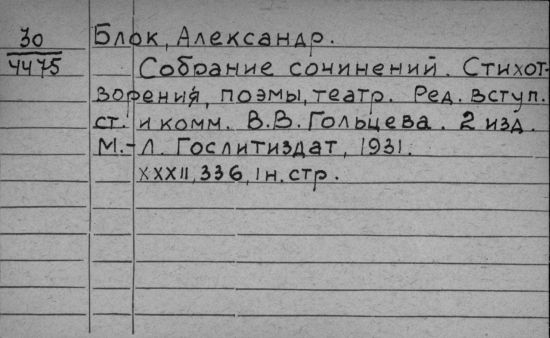 30
4475
Блок, Александр.
Собрание сочинений. Стихот-
ворения, поэмы, театр. Ред. вступ.
ст. и комм. В.В. Гольцева. 2 изд.
М.-Л. Гослитиздат, 1931.
XXXII, 336, 1 н. стр.